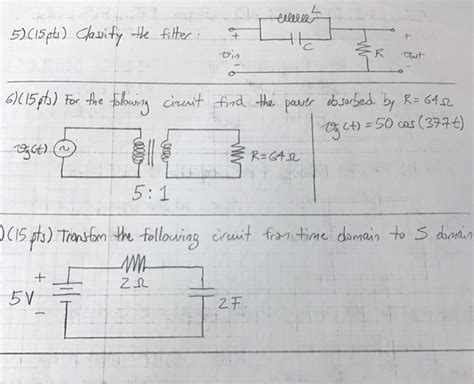 5)(15pts) Classify the filter:
L
+ Vin -
C
R
+ Vout -
6)(15pts) For the following circuit find the power absorbed by R=64Ω
vg(t)=50 cos(377t)
vg(t)
R=64Ω
5:1
)(15 pts) Transfom the following circuit from time domain to S domain
+
5V
-
2Ω
2F.